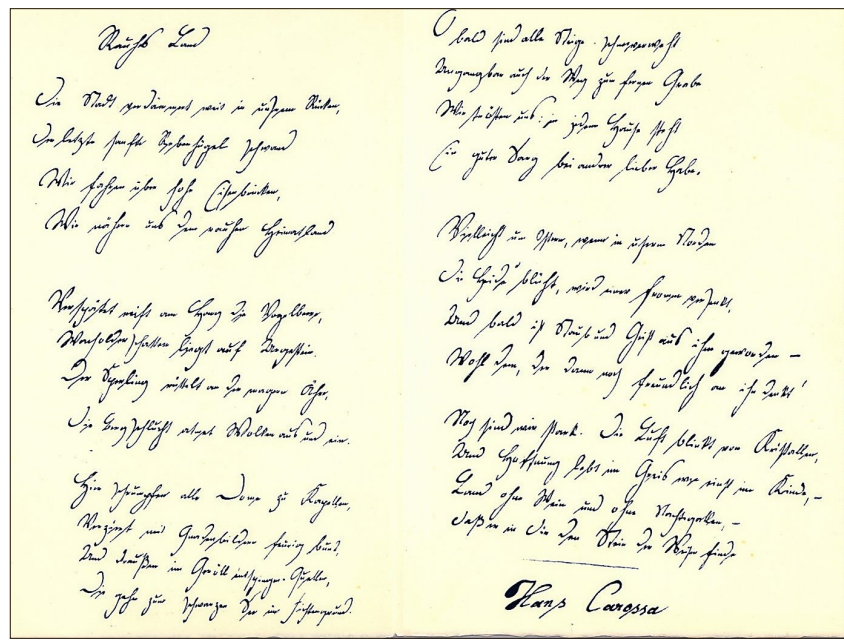 Rauhes Land
Die Stadt verdämmert weit in unserm Rücken,
Der letzte sanfte Rebenhügel schwand
Wir fahren über hohe Eisenbrücken,
Wir nähern uns dem rauhen Heimatland
Verspätet reift am Hang die Vogelbeere,
Wacholderschatten liegt auf Urgestein.
Der Sperling rüttelt an der magern Ähre,
Die Bergschlucht atmet Wolken aus und ein.
Hier schrumpfen alle Dome zu Kapellen,
Verziert mit Gnadenbildern feurig bunt,
Und draußen im Geröll entspringen Quellen,
Die gehn zum schwarzen See im Fichtengrund.
O bald sind alle Steige schneeverweht
Ungangbar auch der Weg zum fernen Grabe
Wir trösten uns: in jedem Hause steht
Ein guter Sarg bei andrer lieber Habe.
Vielleicht um Ostern, wenn in unserm Norden
Die Heide blüht, wird einer fromm versenkt,
Und bald ist Staub und Geist aus ihm geworden –
Wohl dem, der dann noch freundlich an ihn denkt!
Noch sind wir stark. Die Luft blinkt von Kristallen,
Und Hoffnung lebt im Greis wie einst im Kinde, –
Land ohne Wein und ohne Nachtigallen, –
Daß er in dir den Stein der Weisen finde
Hans Carossa